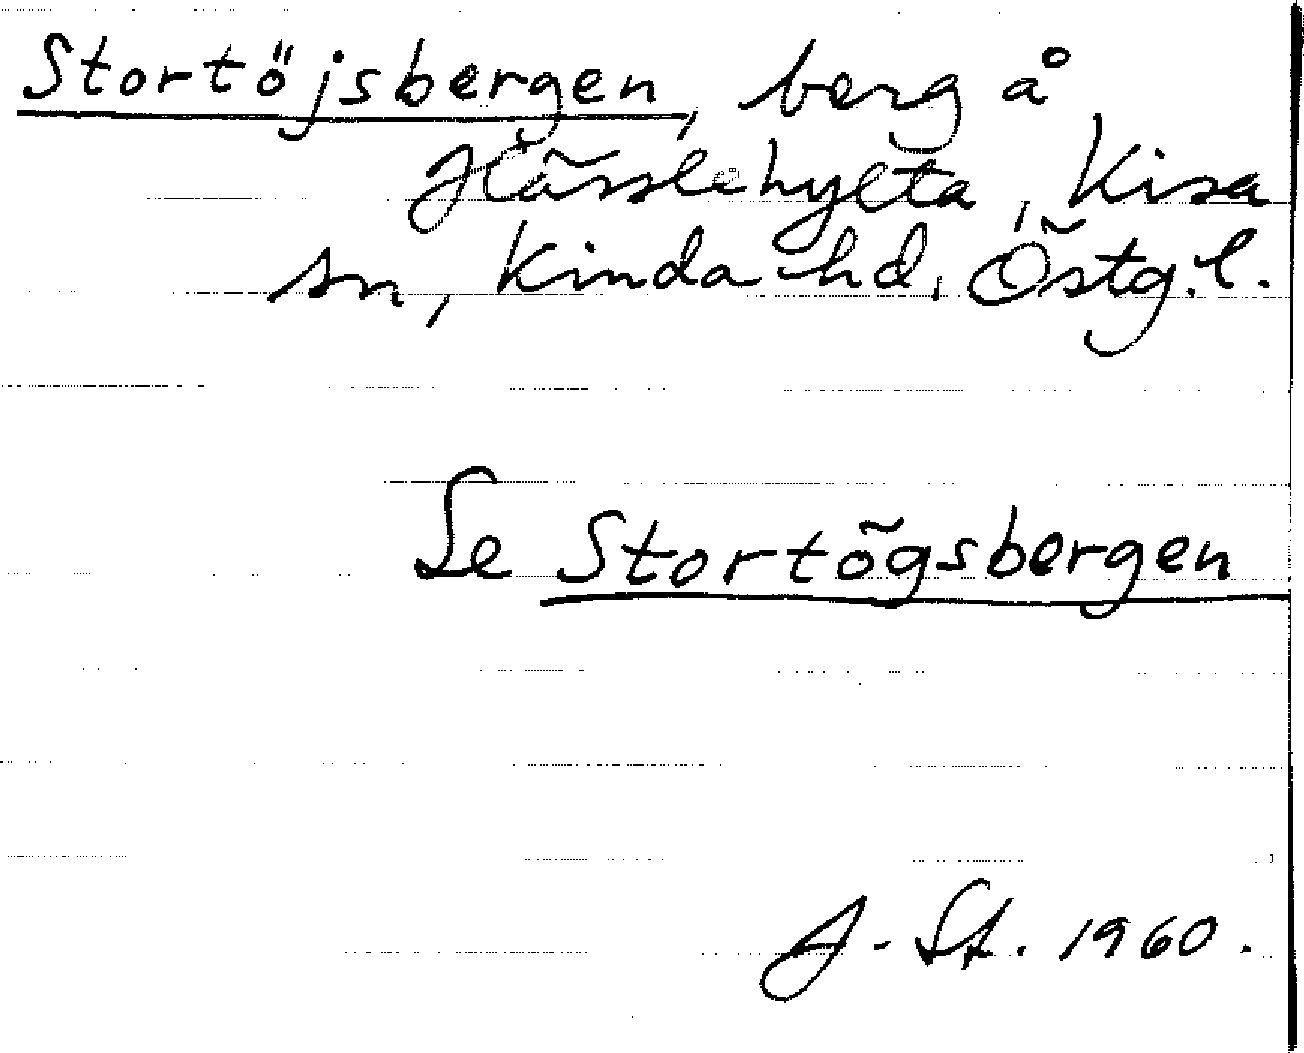 Stortöjsbergen, berg å
Hässlehylta, Kisa
sn, Kinda hd, Östg.l.
Se Stortögsbergen
J. St. 1960.